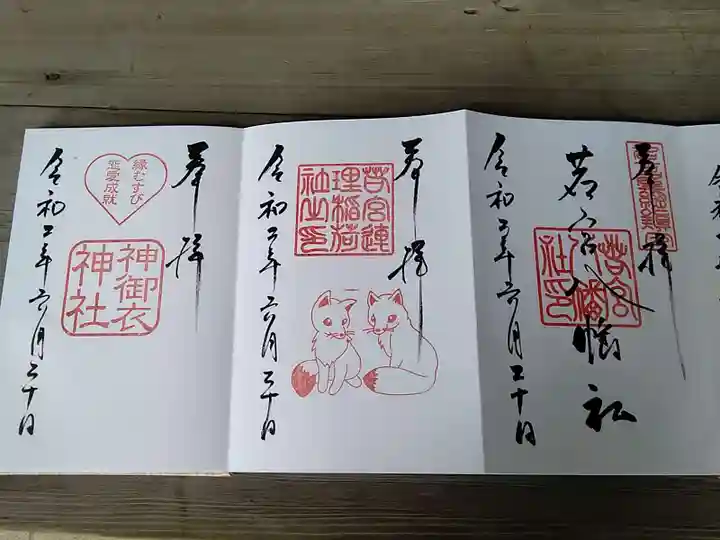 奉拝
若宮八幡社
若宮
八幡
社印
令和二年六月二十日
奉拝
若宮連
理稲荷
社之印
令和二年六月二十日
奉拝
縁むすび
恋愛成就
神御衣
神社
令和二年六月二十日